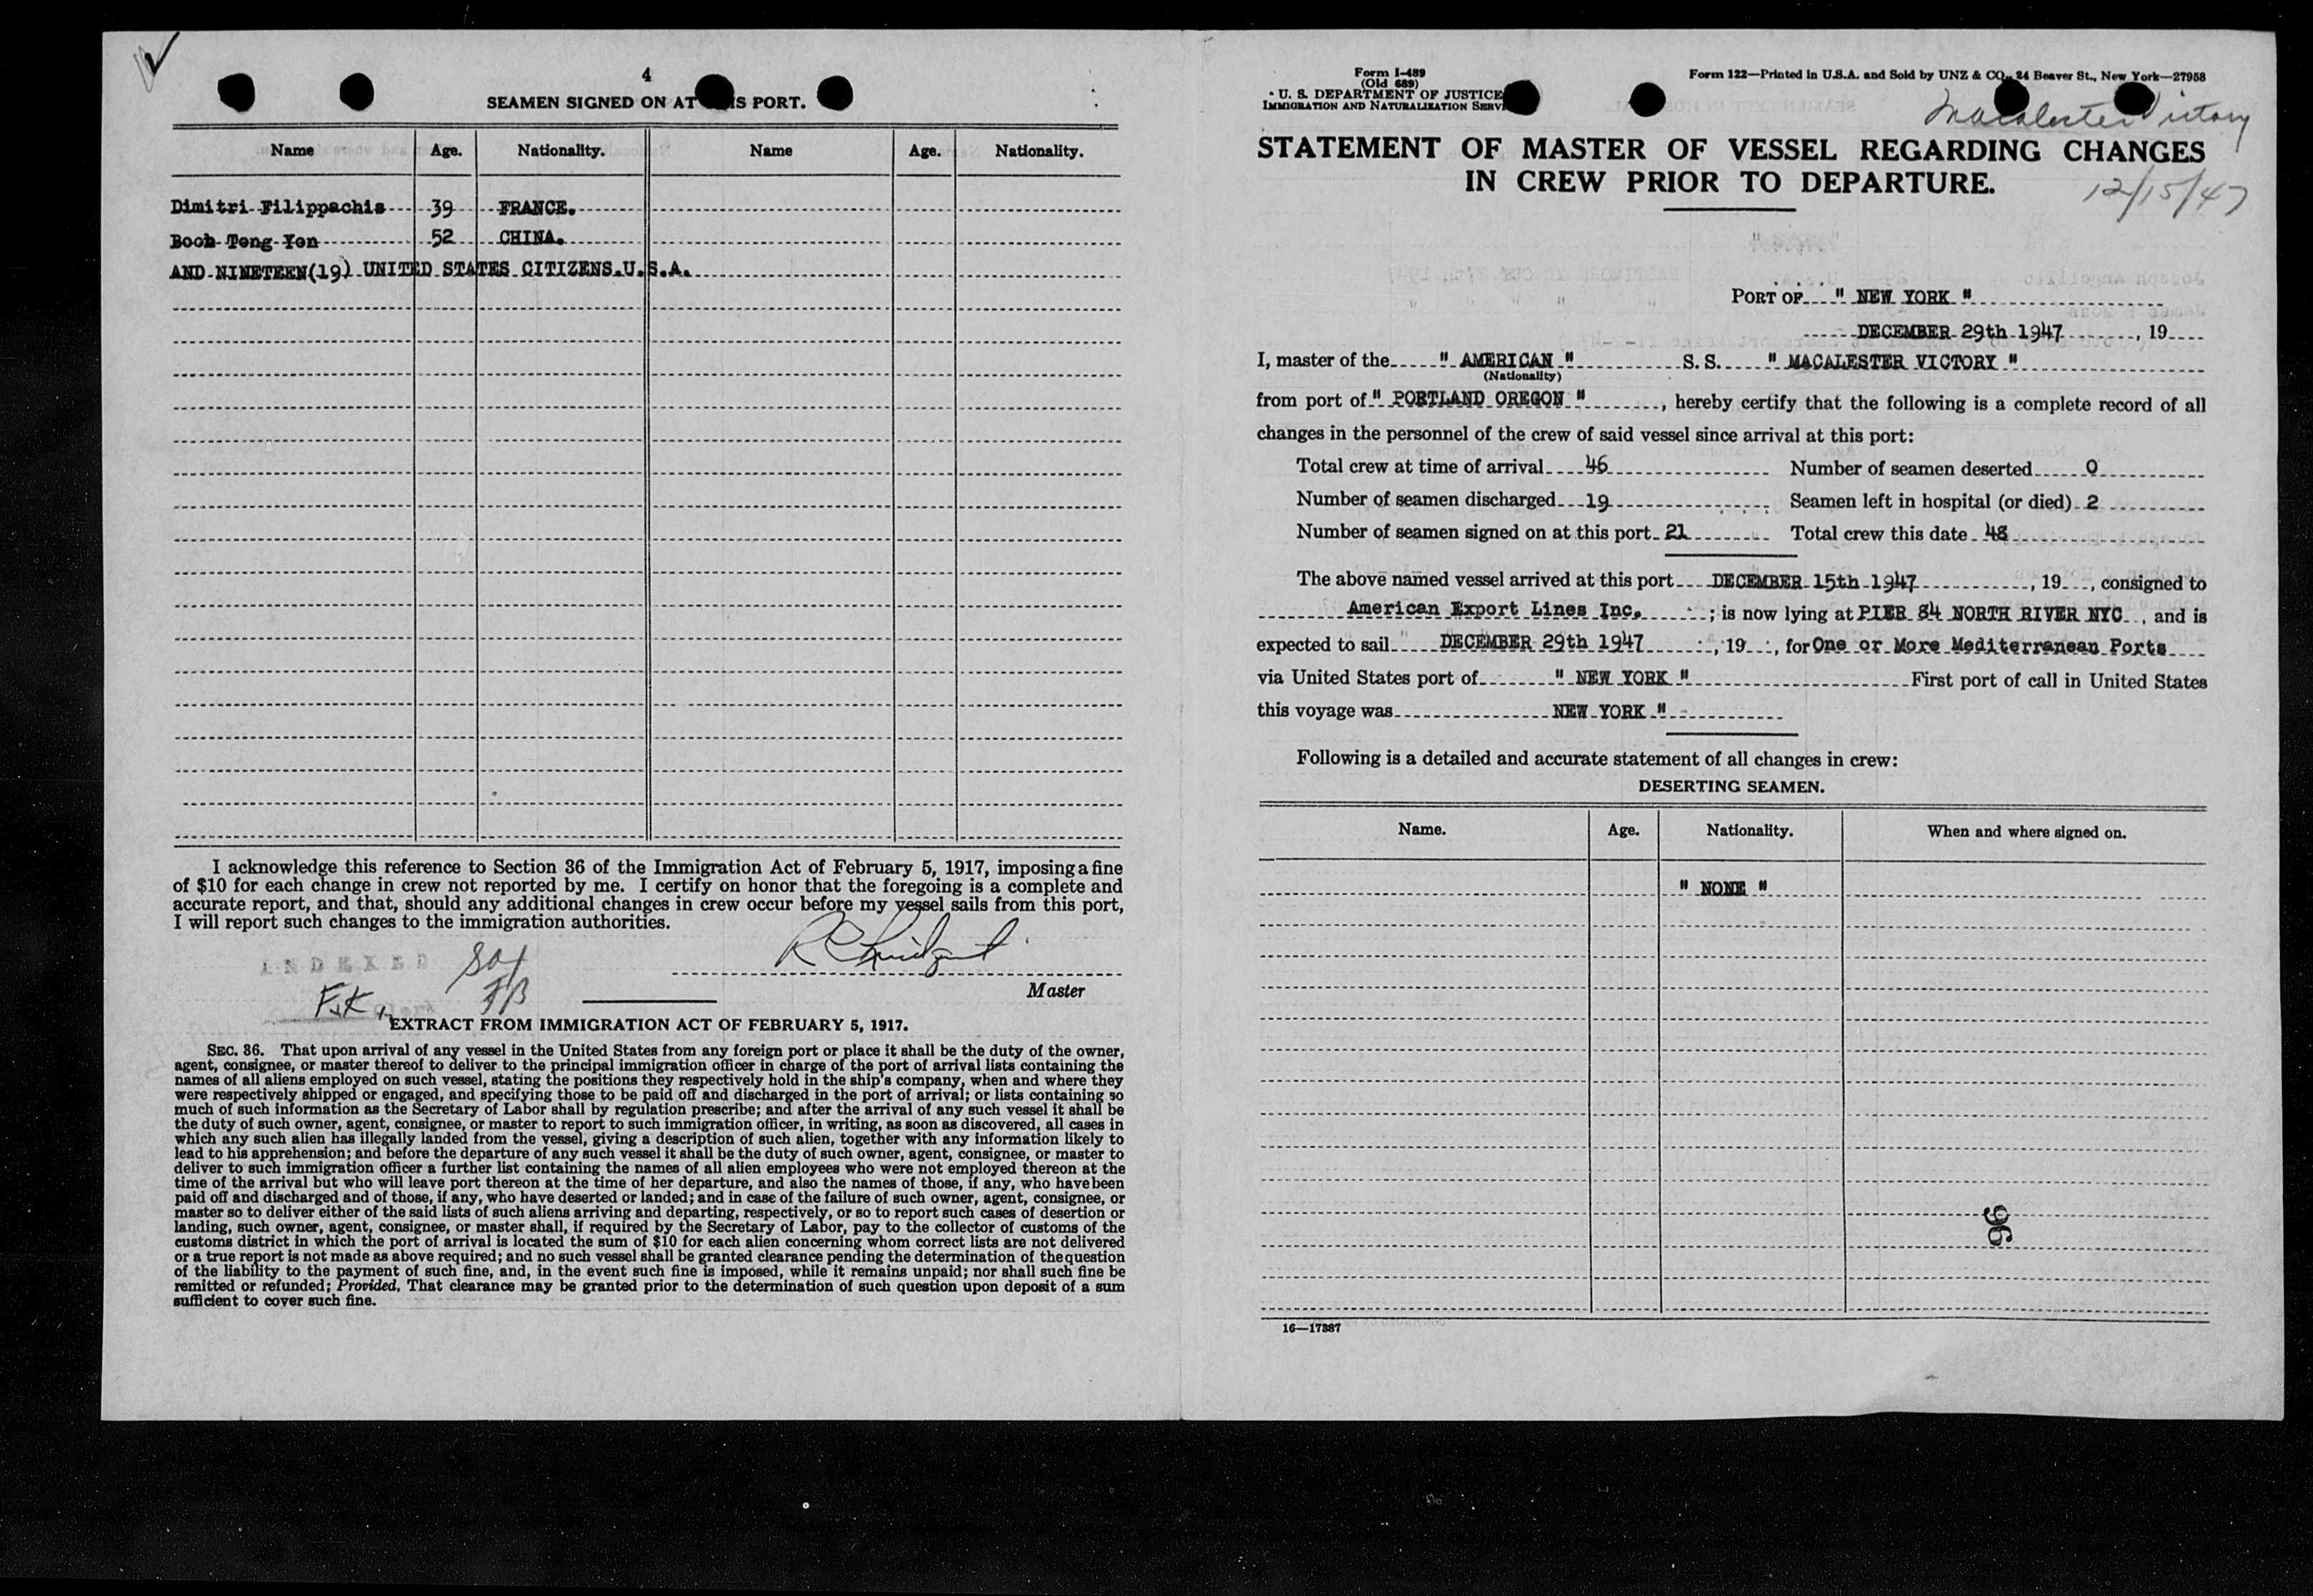 4
SEAMEN SIGNED ON AT THIS PORT.
Name Age. Nationality. Name Age. Nationality.
Dimitri Filippachis 39 FRANCE.
Booh Teng Yen 52 CHINA.
AND NINETEEN(19) UNITED STATES CITIZENS.U.S.A.
I acknowledge this reference to Section 36 of the Immigration Act of February 5, 1917, imposing a fine
of $10 for each change in crew not reported by me. I certify on honor that the foregoing is a complete and
accurate report, and that, should any additional changes in crew occur before my vessel sails from this port,
I will report such changes to the immigration authorities.
INDEXED
Master
EXTRACT FROM IMMIGRATION ACT OF FEBRUARY 5, 1917.
SEC. 36. That upon arrival of any vessel in the United States from any foreign port or place it shall be the duty of the owner,
agent, consignee, or master thereof to deliver to the principal immigration officer in charge of the port of arrival lists containing the
names of all aliens employed on such vessel, stating the positions they respectively hold in the ship's company, when and where they
were respectively shipped or engaged, and specifying those to be paid off and discharged in the port of arrival; or lists containing so
much of such information as the Secretary of Labor shall by regulation prescribe; and after the arrival of any such vessel it shall be
the duty of such owner, agent, consignee, or master to report to such immigration officer, in writing, as soon as discovered, all cases in
which any such alien has illegally landed from the vessel, giving a description of such alien, together with any information likely to
lead to his apprehension; and before the departure of any such vessel it shall be the duty of such owner, agent, consignee, or master to
deliver to such immigration officer a further list containing the names of all alien employees who were not employed thereon at the
time of the arrival but who will leave port thereon at the time of her departure, and also the names of those, if any, who have been
paid off and discharged and of those, if any, who have deserted or landed; and in case of the failure of such owner, agent, consignee, or
master so to deliver either of the said lists of such aliens arriving and departing, respectively, or so to report such cases of desertion or
landing, such owner, agent, consignee, or master shall, if required by the Secretary of Labor, pay to the collector of customs of the
customs district in which the port of arrival is located the sum of $10 for each alien concerning whom correct lists are not delivered
or a true report is not made as above required; and no such vessel shall be granted clearance pending the determination of the question
of the liability to the payment of such fine, and, in the event such fine is imposed, while it remains unpaid; nor shall such fine be
remitted or refunded; Provided, That clearance may be granted prior to the determination of such question upon deposit of a sum
sufficient to cover such fine.
Form I-489
(Old 689)
U. S. DEPARTMENT OF JUSTICE
IMMIGRATION AND NATURALIZATION SERVI
Form 122—Printed in U.S.A. and Sold by UNZ & CO., 24 Beaver St., New York—27958
Macalester Victory
STATEMENT OF MASTER OF VESSEL REGARDING CHANGES
IN CREW PRIOR TO DEPARTURE.
12/15/47
PORT OF " NEW YORK "
DECEMBER 29th 1947, 19
I, master of the " AMERICAN " S. S. " MACALESTER VICTORY "
(Nationality)
from port of " PORTLAND OREGON ", hereby certify that the following is a complete record of all
changes in the personnel of the crew of said vessel since arrival at this port:
Total crew at time of arrival 46 Number of seamen deserted 0
Number of seamen discharged 19 Seamen left in hospital (or died) 2
Number of seamen signed on at this port 21 Total crew this date 48
The above named vessel arrived at this port DECEMBER 15th 1947, 19, consigned to
American Export Lines Inc. ; is now lying at PIER 84 NORTH RIVER NYC, and is
expected to sail DECEMBER 29th 1947, 19, for One or More Mediterranean Ports
via United States port of " NEW YORK " First port of call in United States
this voyage was NEW YORK "
Following is a detailed and accurate statement of all changes in crew:
DESERTING SEAMEN.
Name. Age. Nationality. When and where signed on.
" NONE "
96
16—17387